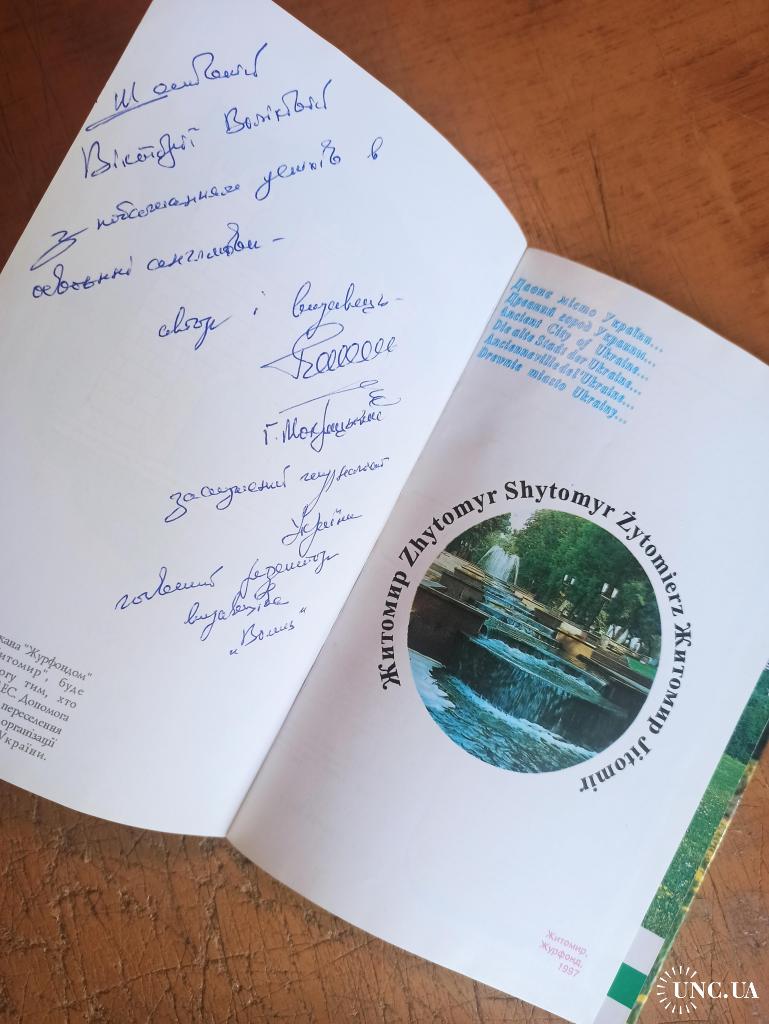 Шановній
Вікторії Волківній
з побажанням успіхів в
автор і видавець -
Г. Мокрицький
заслужений журналіст
України
головний редактор
видавництва
"Волинь"
кана "Журфондом"
итомир", буде
огу тим, хто
ЕС. Допомога
переселення
організації
України.
Давнє місто України...
Древний город Украины...
Ancient City of Ukraine...
Die alte Stadt der Ukraine...
Ancienneville de l'Ukraine...
Drewnie miasto Ukrainy...
Житомир Zhytomyr Shytomyr Żytomierz Житомир Jitomir
Житомир,
Журфонд,
1997
UNC.UA